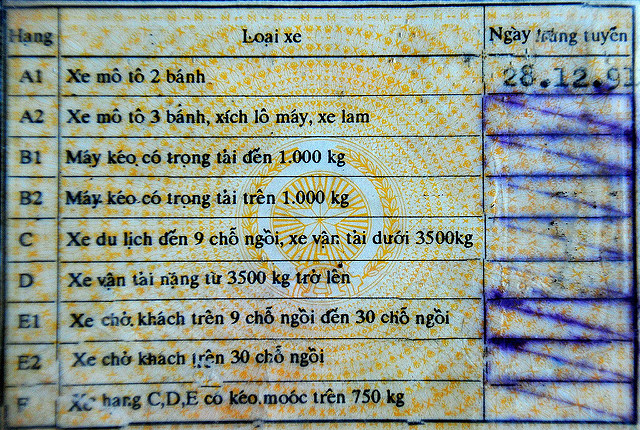 Hang Loại xe Ngày trúng tuyển
A1 Xe mô tô 2 bánh 28.12.91
A2 Xe mô tô 3 bánh, xích lô máy, xe lam
B1 Máy kéo có trọng tải đến 1.000 kg
B2 Máy kéo có trọng tải trên 1.000 kg
C Xe du lịch đến 9 chỗ ngồi, xe vận tải dưới 3500kg
D Xe vận tải nặng từ 3500 kg trở lên
E1 Xe chở khách trên 9 chỗ ngồi đến 30 chỗ ngồi
E2 Xe chở khách trên 30 chỗ ngồi
F Xe hang C,D,E có kéo moóc trên 750 kg